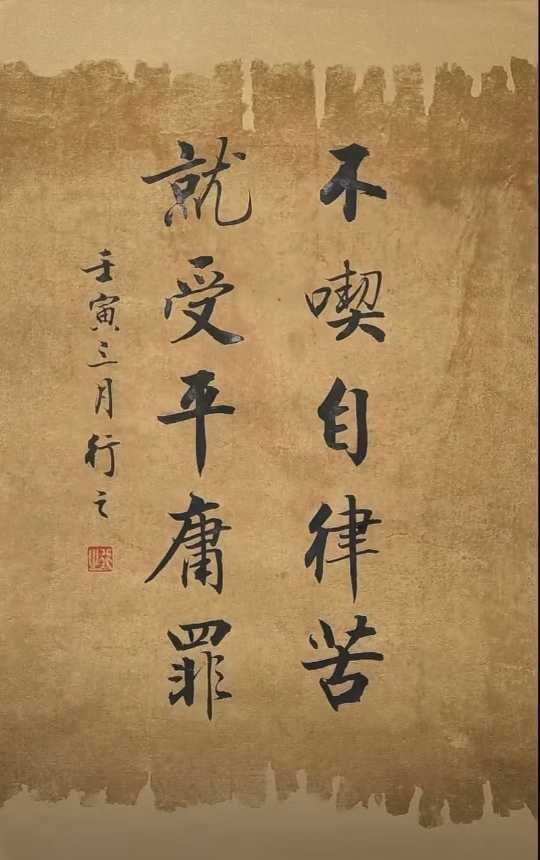 不喫自律苦
就受平庸罪
壬寅三月行之